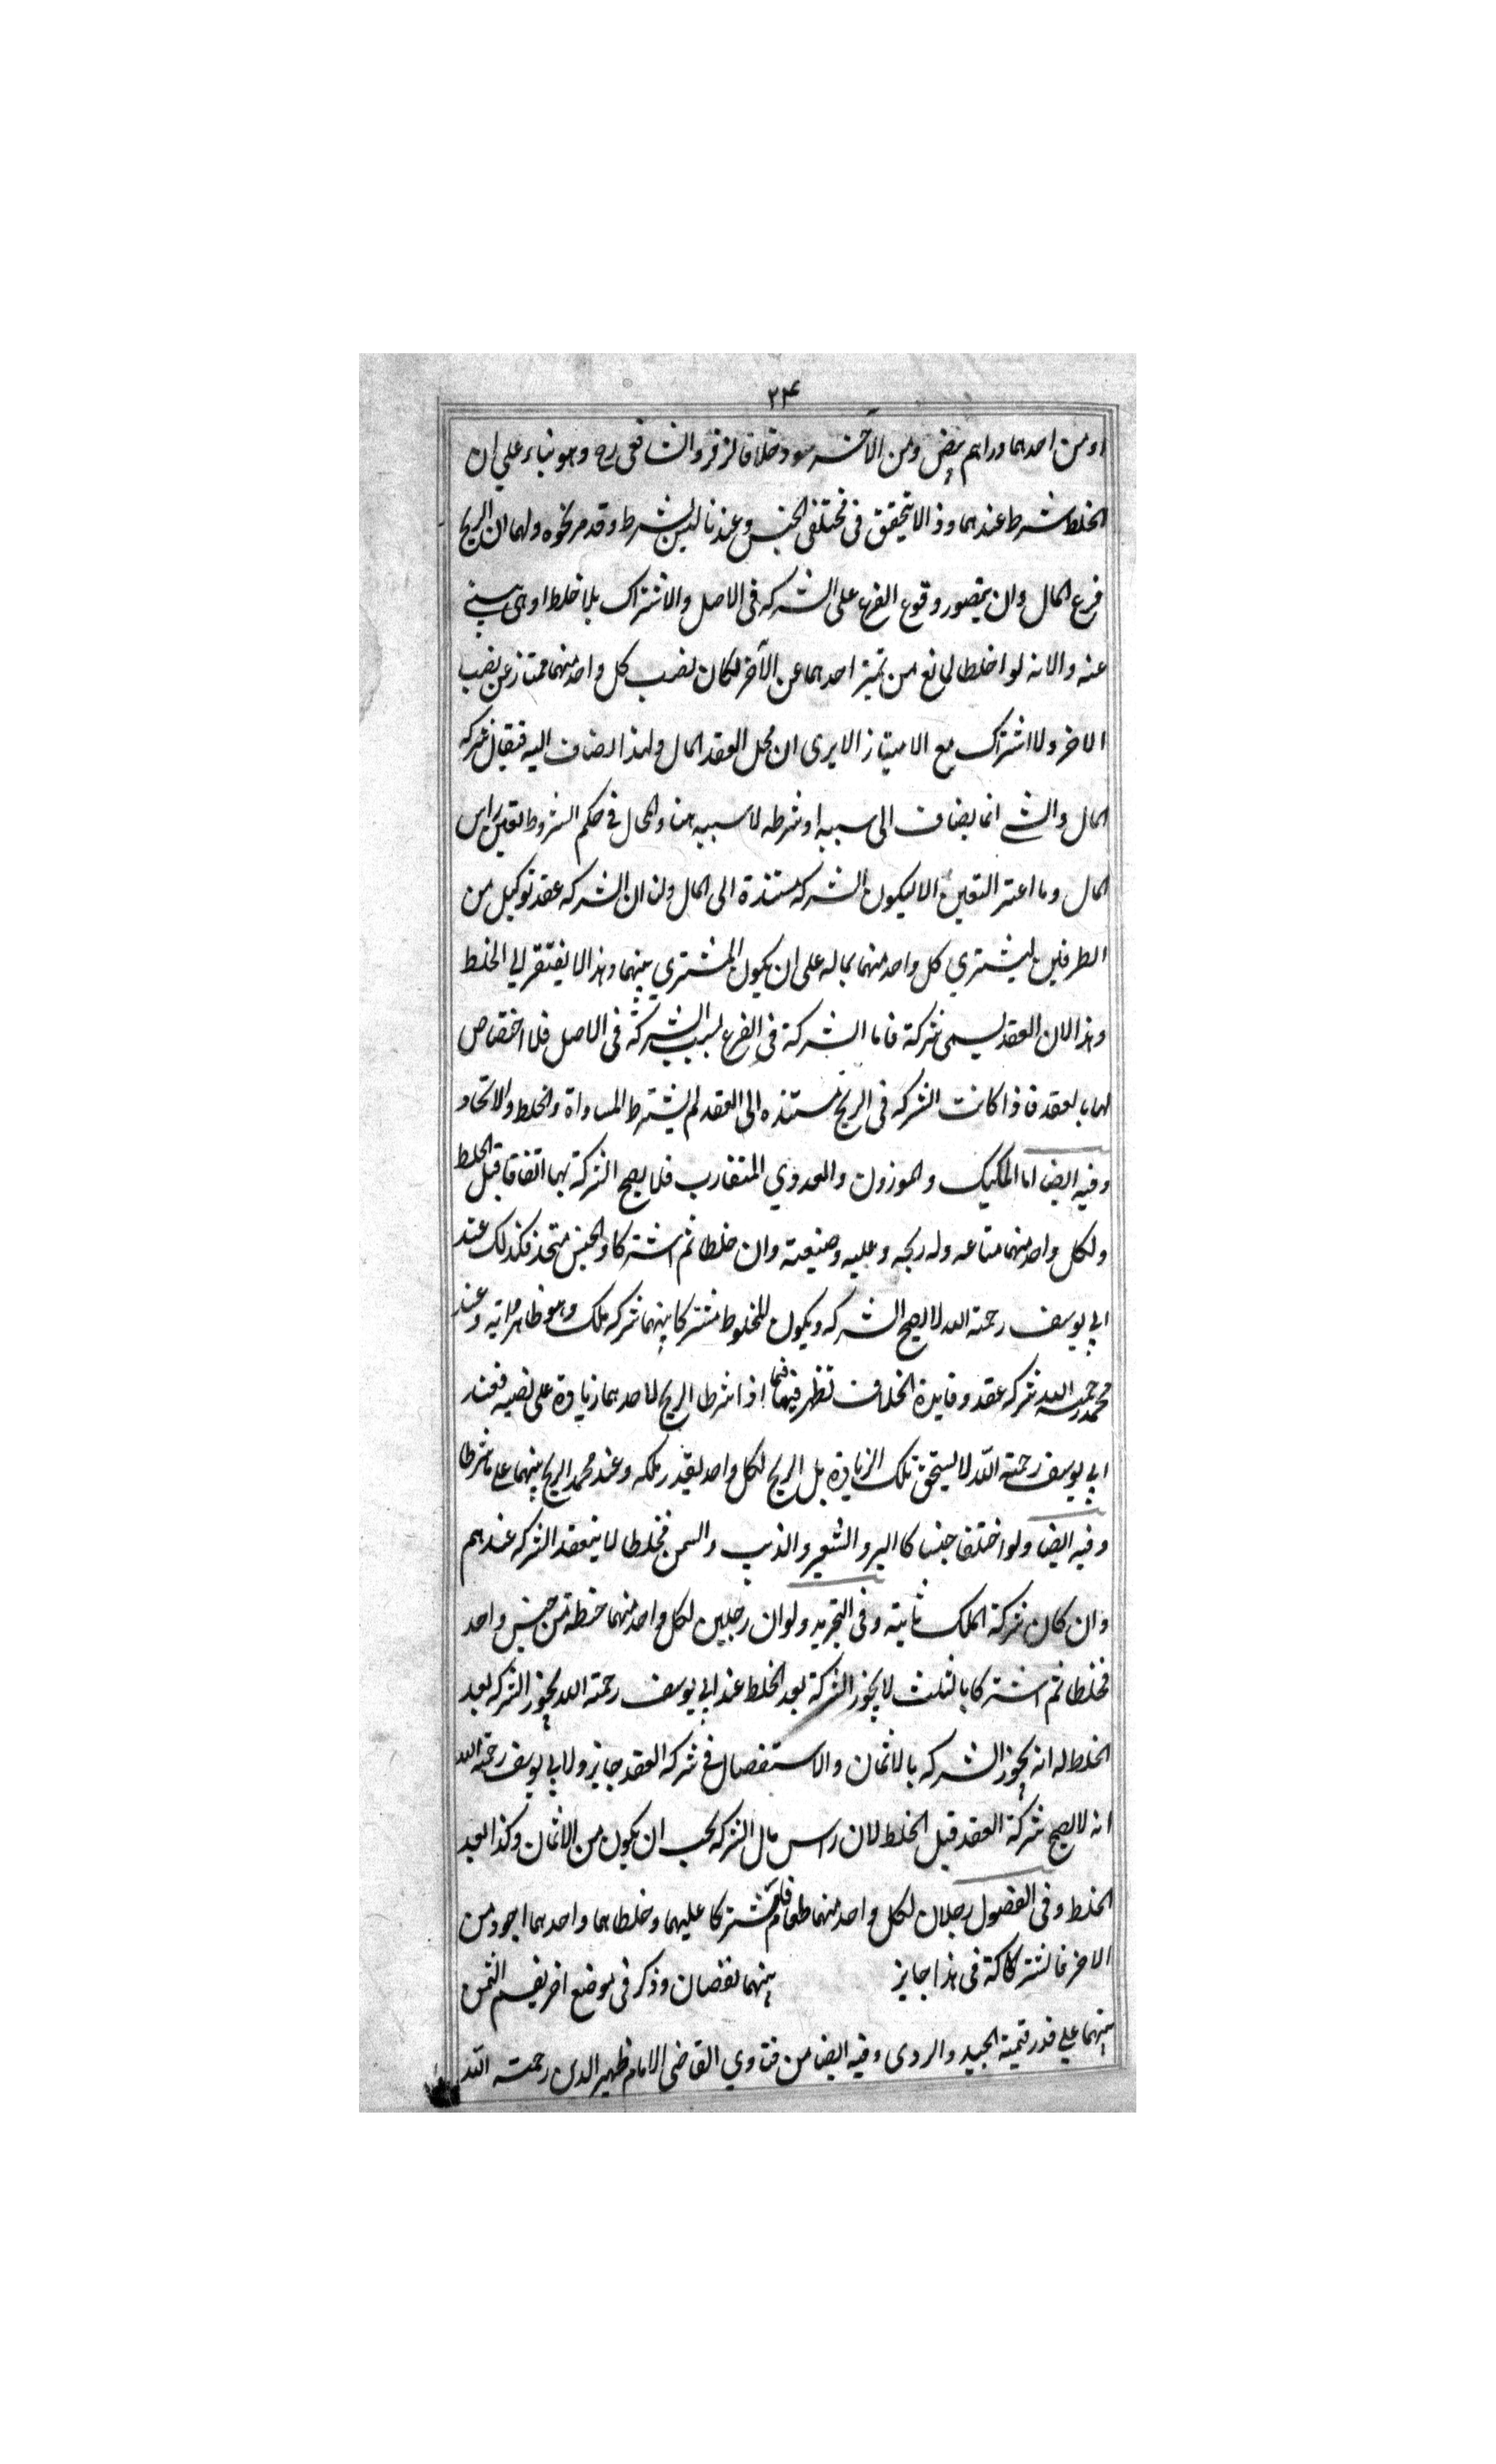 ٢٣
او من احدهما دراهم بيض ومن الآخر سود خلافا لزفر والشافعى رح وهو بناء على ان
الخلط شرط عندهما وذا لا يتحقق فى مختلفى الجنس وعندنا ليس بشرط وقد مر نحوه ولهما ان الربح
فرع المال وان يتصور وقوع الفرع على الشركه فى الاصل والاشتراك بلا خلط
عنه والانه لو اختلطا لمانع من تميز احدهما عن الآخر لكان نصيب كل واحد منهما ممتاز عن نصيب
الاخر ولا اشتراك مع الامتياز الا يرى ان محل العقد المال ولهذا يضاف اليه فيقال شركه
المال والشئ انما يضاف الى سببه او شرطه لا سببيه هنا والمحال فى حكم الشروط لتعين راس
المال وما اعتبر التعين الا ليكون الشركه مستندة الى المال ولنا ان الشركه عقد توكيل من
الطرفين ليشتري كل واحد منهما بماله على ان يكون المشتري بينهما وهذا لا يفتقر الى الخلط
وهذا لان العقد يسمى شركة فاما الشركة فى الفرع بسبب الشركة فى الاصل فلا اختصاص
لها بالعقد فاذا كانت الشركه فى الربح مستنده الى العقد لم يشترط المساواة والخلط والاتحاد
وفيه ايضا اما المكيل والموزون والعددي المتقارب فلا يصح الشركة بهما اتفاقا قبل الخلط
ولكل واحد منهما متاعه وله ربحه وعليه وضيعته وان خلطا ثم اشتركا والجنس متحد فكذلك عند
ابي يوسف رحمته الله لا يصح الشركه ويكون المخلوط مشتركا بينهما شركه ملك وهو ظاهر روايته وعند
محمد رحمه الله شركه عقد وفايدة الخلاف تظهر فيما اذا شرطا الربح لاحدهما زيادة على نصيبه فعند
ابي يوسف رحمته الله لا يستحق تلك الزيادة بل الربح لكل واحد بقدر ملكه وعند محمد الربح بينهما على ما شرطا
وفيه ايضا ولو اختلفا جنسا كالبر والشعير والزيت والسمن فخلطا لا ينعقد الشركه عندهم
وان كان شركة الملك ثابته وفى التجريد ولو ان رجلين لكل واحد منهما حنطة من جنس واحد
فخلطا ثم اشتركا بالثلث لا يجوز الشركة بعد الخلط عند ابي يوسف رحمته الله يجوز الشركه بعد
الخلط له انه يجوز الشركه بالاثمان والاستفصال فى شركه العقد جايز ولابي يوسف رحمته الله
انه لا يصح شركة العقد قبل الخلط لان راس مال الشركه يجب ان يكون من الاثمان وكذا بعد
الخلط وفى الفصول رجلان لكل واحد منهما طعام فاشتركا عليهما وخلطاهما واحدهما اجود من
الاخر فالشركة فى هذا جايز بينهما نقصان وذكر فى موضع اخر يقسم الثمن
بينهما على قدر قيمة الجيد والردى وفيه ايضا من فتاوي القاضى الامام ظهير الدين رحمته الله